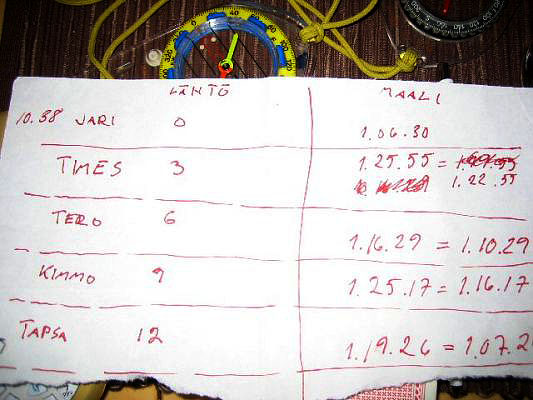 LÄHTÖ MAALI
10.38 JARI 0 1.06.30
TIMES 3 1.25.55 =
1.22.55
TERO 6 1.16.29 = 1.10.29
KIMMO 9 1.25.17 = 1.16.17
TAPSA 12 1.19.26 = 1.07.2